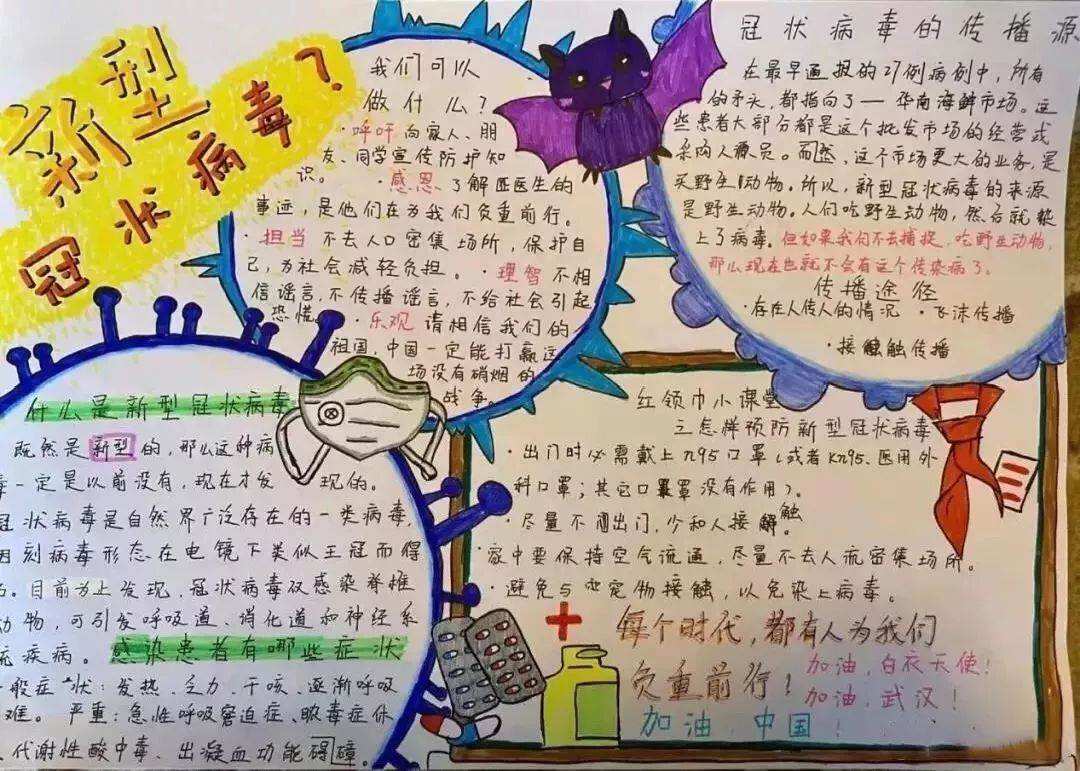 新型
冠状病毒？
我们可以
做什么？
·呼吁 向家人、朋
友、同学宣传防护知
识。 ·感恩 了解医医生的
事迹，是他们在为我们负重前行。
·担当 不去人口密集场所，保护自
己，为社会减轻负担。·理智 不相
信谣言，不传播谣言，不给社会引起
恐慌。·乐观 请相信我们的
祖国，中国一定能打赢这
场没有硝烟的
战争。
冠状病毒的传播源
在最早通报的27例病例中，所有
的矛头，都指向了一华南海鲜市场。这
些患者大部分都是这个批发市场的经营或
采购人员。而然，这个市场更大的业务，是
买野生动物。所以，新型冠状病毒的来源
是野生动物。人们吃野生动物，然后就
上了病毒。但如果我们不去捕捉、吃野生动物，
那么现在也就不会有这个传染病了。
传播途径
·存在人传人的情况 ·飞沫传播
·接触触传播
什么是新型冠状病毒
既然是新型的，那么这种病
毒一定是以前没有，现在才发现的。
冠状病毒是自然界广泛存在的一类病毒，
因刻病毒形态在电镜下类似王冠而得
名。目前为上发现，冠状病毒双感染脊椎
动物，可引发呼吸道、消化道和神经系
统疾病。感染患者有哪些症状
般症状：发热、乏力、干咳、逐渐呼吸
难。严重：急性呼吸窘迫症、脓毒症休
代谢性酸中毒、出凝血功能碍障。
红领巾小课堂
之怎样预防新型冠状病毒
·出门时必需戴上n95口罩（或者Kn95、医用外
科口罩；其它口罩没有作用）。
·尽量不出门，少和人接触
·家中要保持空气流通，尽量不去人流密集场所。
·避免与宠物接触，以免染上病毒。
每个时代，都有人为我们
负重前行！加油，白衣天使！
加油，武汉！
加油，中国！